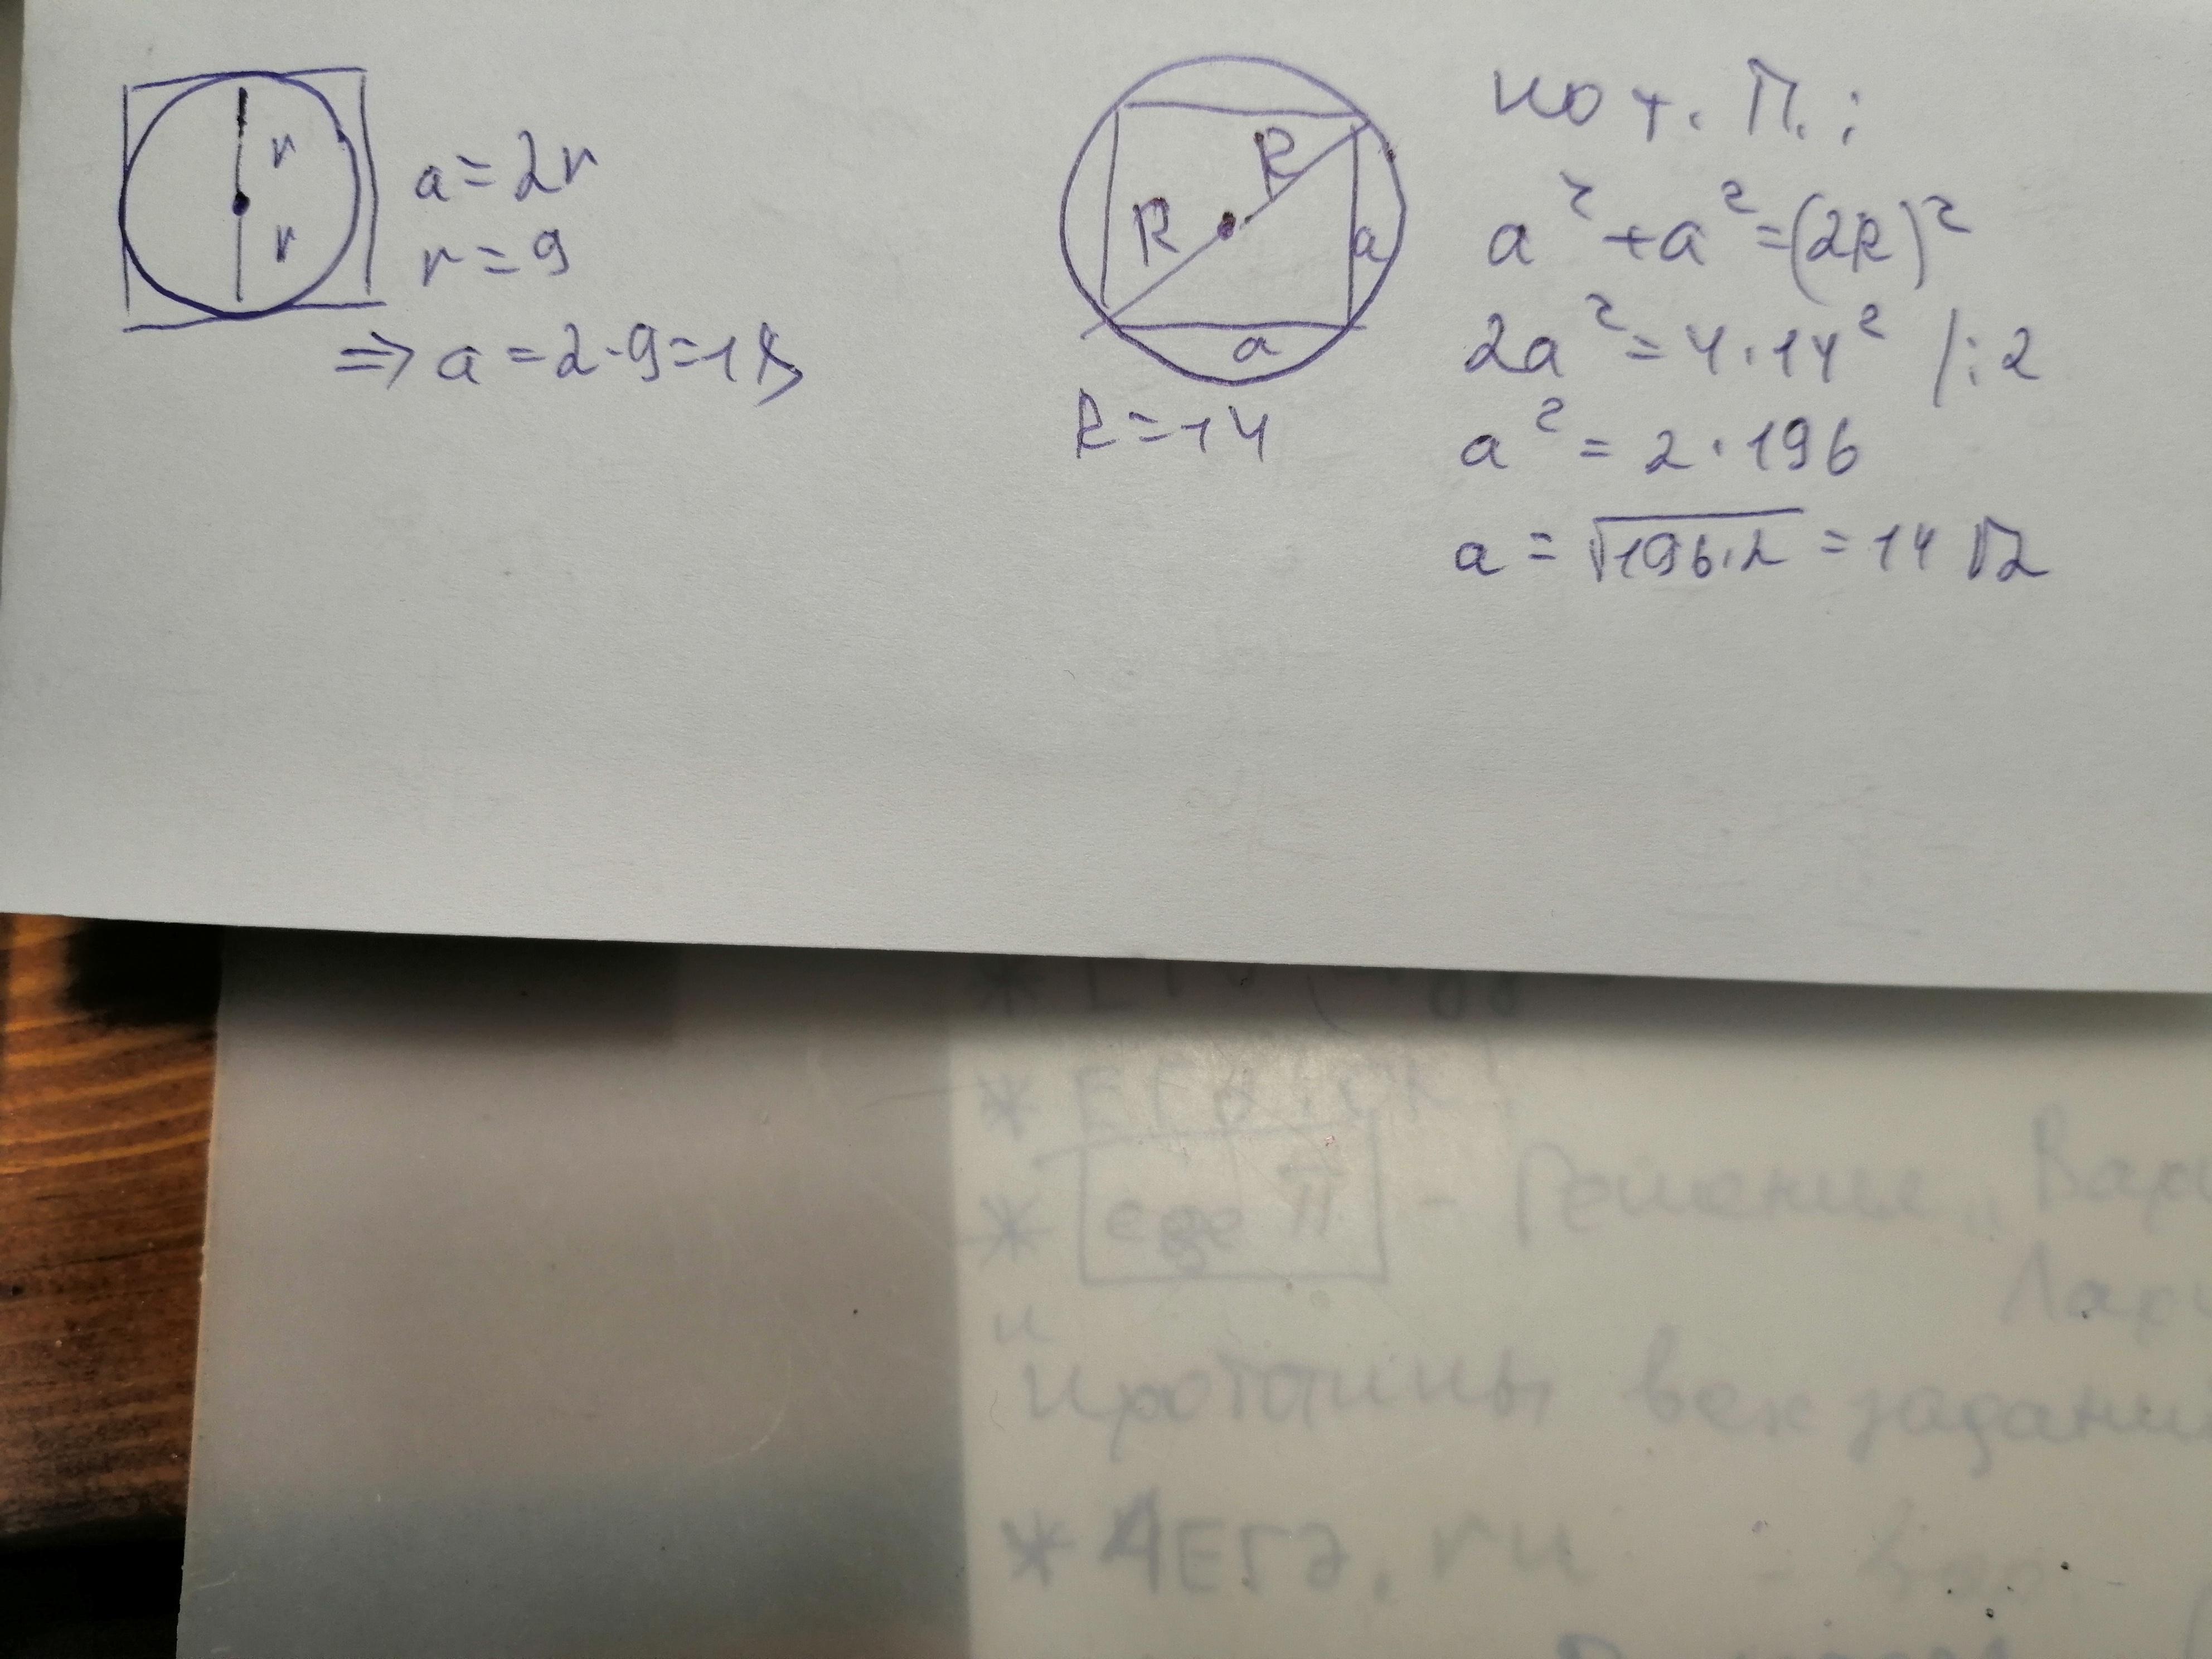 r
r
a = 2r
r = 9
⇒ a = 2·9 = 18
R
R
a
a
R = 14
по т. П. :
a² + a² = (2R)²
2a² = 4·14² /:2
a² = 2·196
a = √196·2 = 14√2
*
* егэ π - Решение „ Вар
и
прототипы всех задани
* 4ЕГЭ.ru -